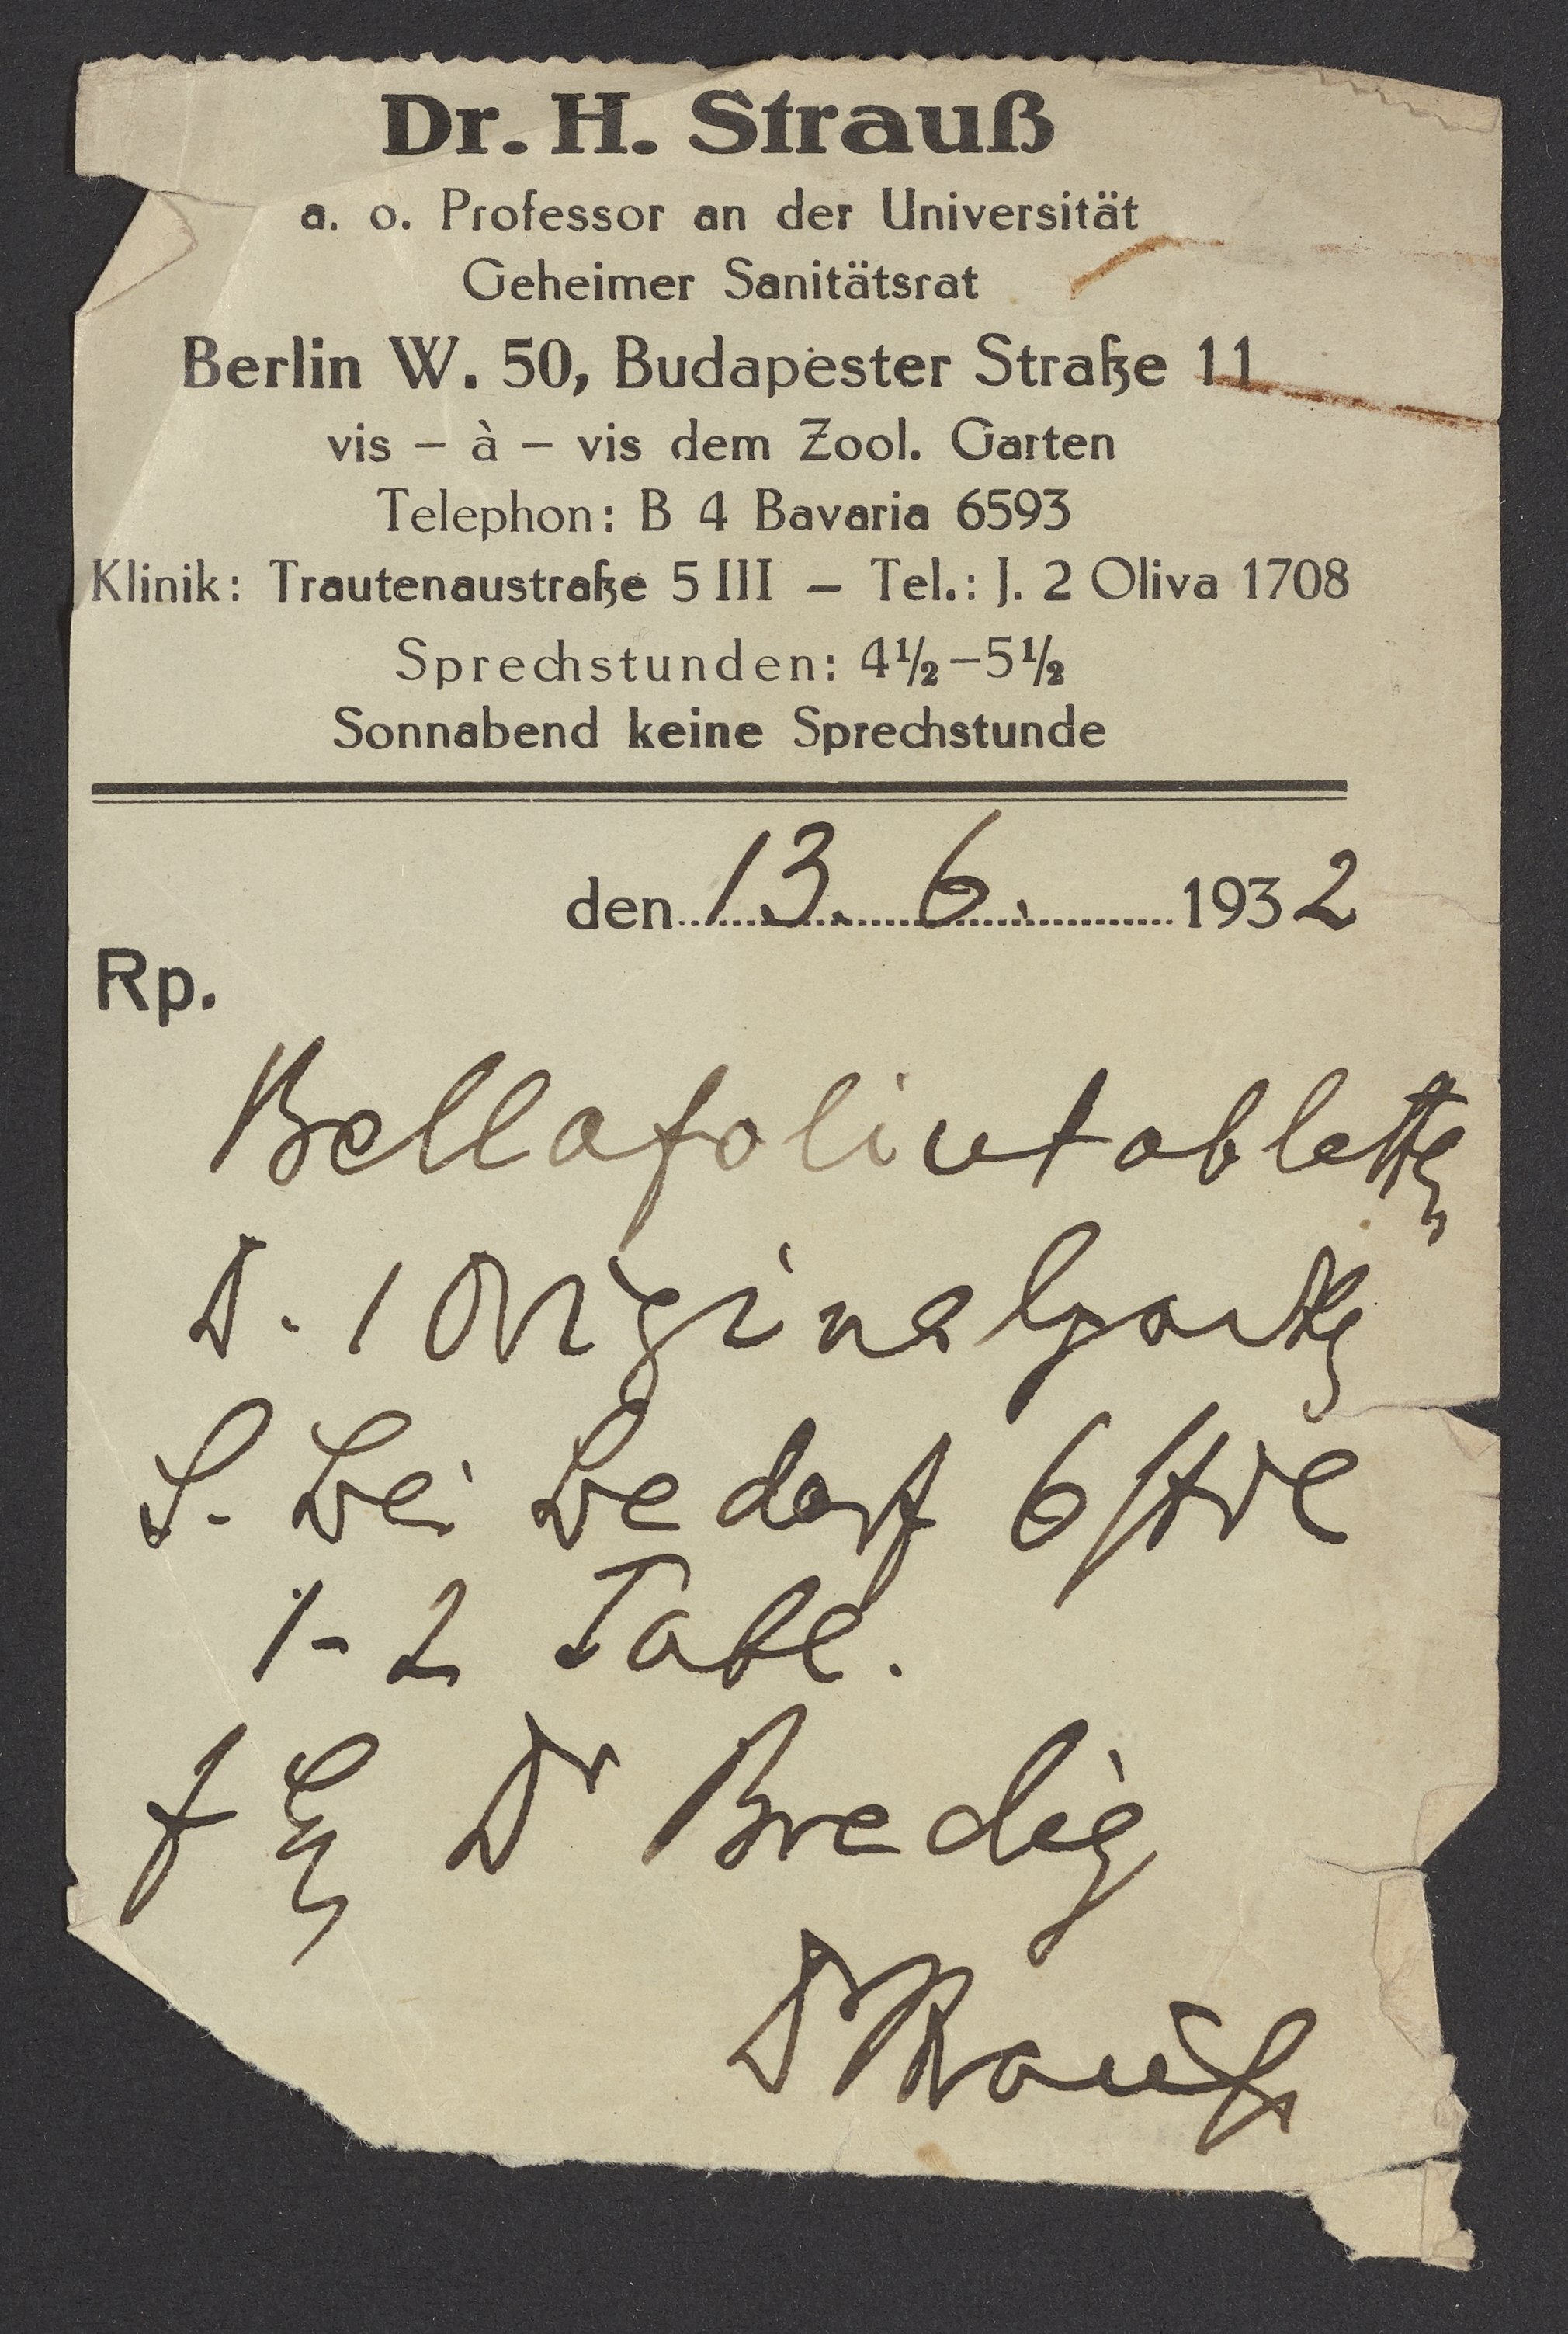 Dr. H. Strauß
a. o. Professor an der Universität
Geheimer Sanitätsrat
Berlin W. 50, Budapester Straße 11
vis – à – vis dem Zool. Garten
Telephon: B 4 Bavaria 6593
Klinik: Trautenaustraße 5 III – Tel.: J. 2 Oliva 1708
Sprechstunden: 4½–5½
Sonnabend keine Sprechstunde
den 13. 6. 1932
Rp.
Bellafolintabletten
D. 1 Originalpackg
S. bei Bedarf
1-2 Tabl.
f Dr Bredig
Strauß